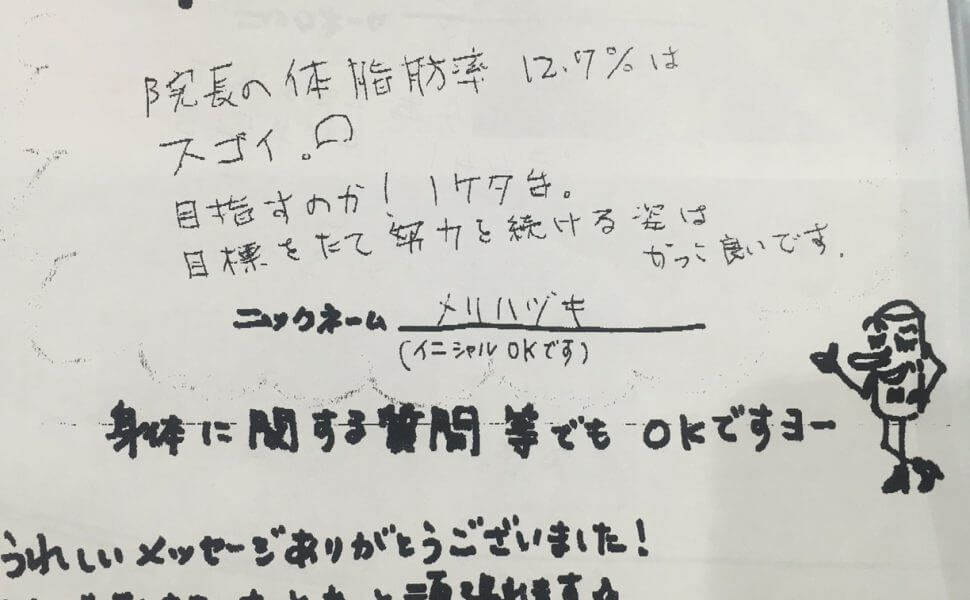 院長の体脂肪率 12.7%は
スゴイ。
目指すのか! 1ケタ台。
目標をたて努力を続ける姿は
かっこ良いです.
ニックネーム メリハヅキ
(イニシャルOKです)
身体に関する質問等でも OKですヨー
うれしいメッセージありがとうございました!
頑張れます